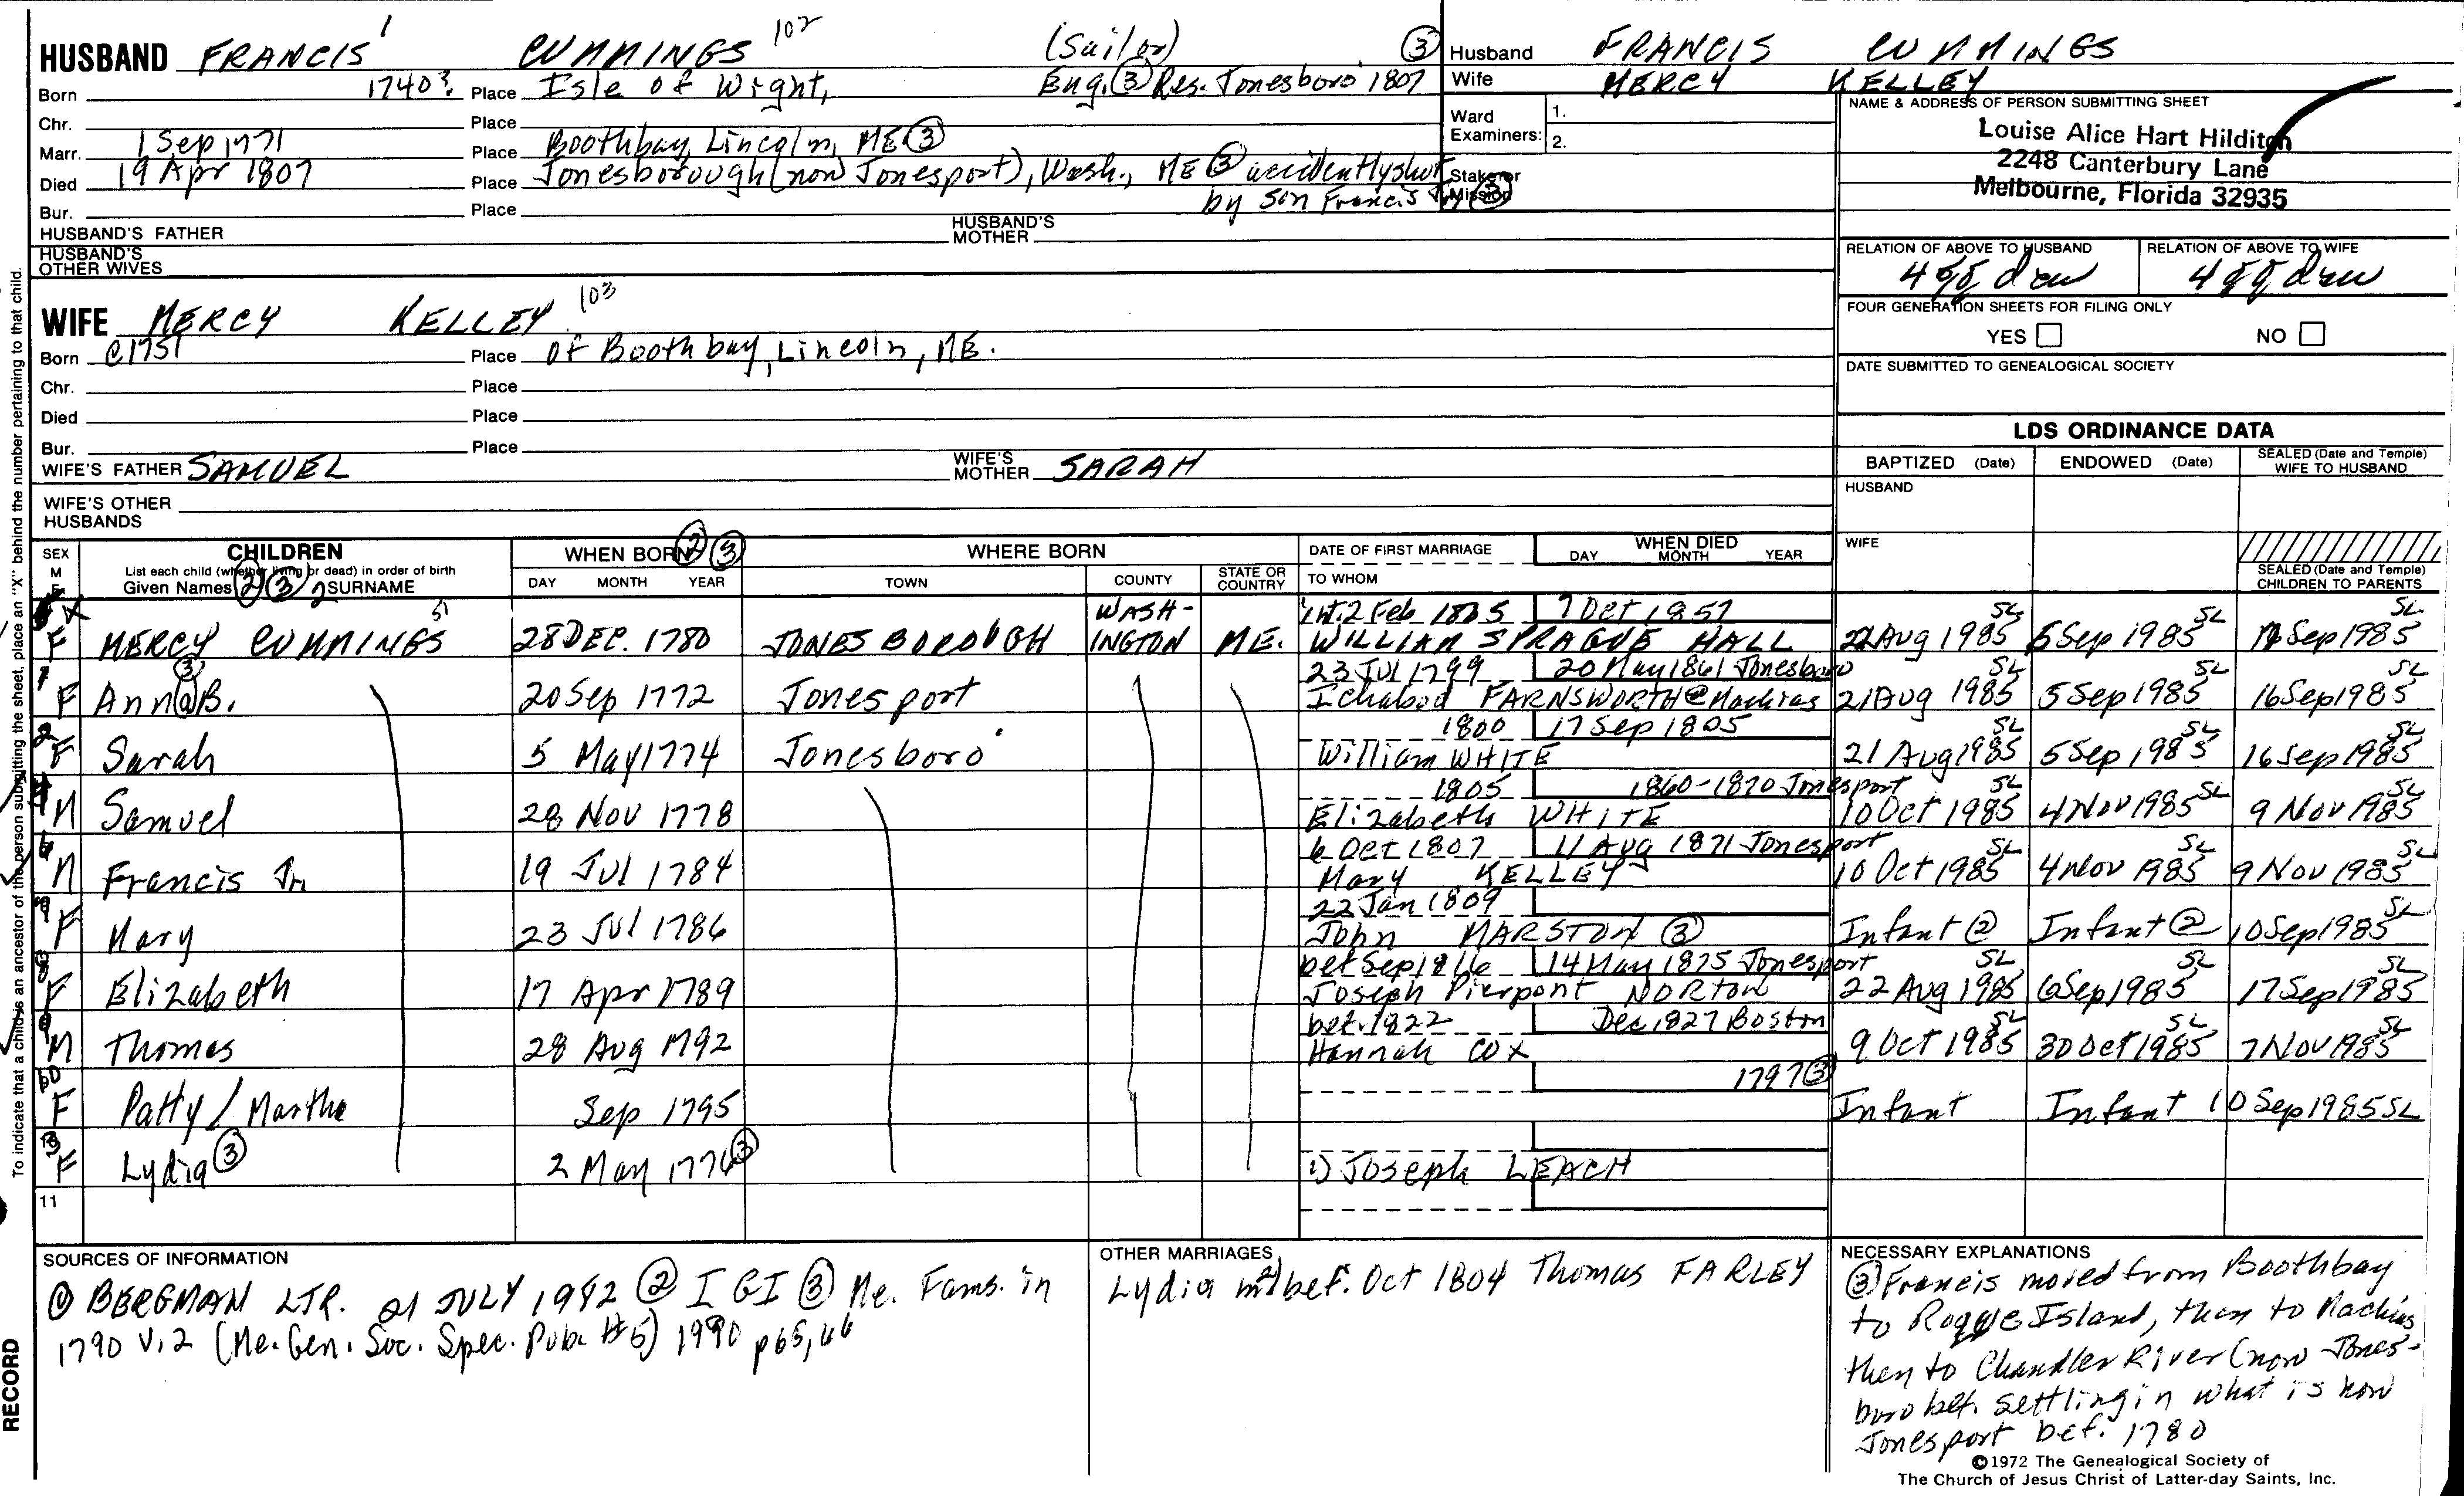 HUSBAND FRANCIS 1 CUMMINGS 102 (Sailor) ③
Born 1740? Place Isle of Wight, Eng. ③ Res. Jonesboro 1807
Chr. Place
Marr. 1 Sep 1771 Place Boothbay, Lincoln, ME ③
Died 19 Apr 1807 Place Jonesborough (now Jonesport), Wash., ME ③ accidently shot
by son Francis Jr. ③
Bur. Place
HUSBAND'S FATHER HUSBAND'S MOTHER
HUSBAND'S OTHER WIVES
Husband FRANCIS CUMMINGS
Wife MERCY KELLEY
Ward Examiners: 1.
2.
Stake or Mission
NAME & ADDRESS OF PERSON SUBMITTING SHEET
Louise Alice Hart Hilditch
2248 Canterbury Lane
Melbourne, Florida 32935
RELATION OF ABOVE TO HUSBAND RELATION OF ABOVE TO WIFE
4 gg dau 4 gg dau
FOUR GENERATION SHEETS FOR FILING ONLY
YES NO
DATE SUBMITTED TO GENEALOGICAL SOCIETY
WIFE MERCY KELLEY 103
Born C1751 Place of Boothbay, Lincoln, ME.
Chr. Place
Died Place
Bur. Place
WIFE'S FATHER SAMUEL WIFE'S MOTHER SARAH
WIFE'S OTHER HUSBANDS
LDS ORDINANCE DATA
BAPTIZED (Date) ENDOWED (Date) SEALED (Date and Temple) WIFE TO HUSBAND
HUSBAND
WIFE
SEALED (Date and Temple) CHILDREN TO PARENTS
SEX M F CHILDREN WHEN BORN ② ③ WHERE BORN DATE OF FIRST MARRIAGE WHEN DIED DAY MONTH YEAR
List each child (whether living or dead) in order of birth
Given Names ② ③ 2 SURNAME DAY MONTH YEAR TOWN COUNTY STATE OR COUNTRY TO WHOM
X 51 WASH- int. 2 Feb 1805 7 Oct 1857 SL SL SL
F MERCY CUMMINGS 28 DEC. 1780 JONESBOROUGH INGTON ME. WILLIAM SPRAGUE HALL 22 Aug 1985 6 Sep 1985 Sep 1985
1 ③ 23 Jul 1799 20 May 1861 Jonesboro SL SL SL
F Ann@B. 20 Sep 1772 Jonesport Ichabod FARNSWORTH @ Machias 21 Aug 1985 5 Sep 1985 16 Sep 1985
2 1800 17 Sep 1805 SL SL SL
F Sarah 5 May 1774 Jonesboro William WHITE 21 Aug 1985 5 Sep 1985 16 Sep 1985
1805 1860-1870 Jonesport SL SL SL
M Samuel 28 Nov 1778 Elizabeth WHITE 10 Oct 1985 4 Nov 1985 9 Nov 1985
6 Oct 1807 11 Aug 1871 Jonesport SL SL SL
M Francis Jr. 19 Jul 1784 Mary KELLEY 10 Oct 1985 4 Nov 1985 9 Nov 1985
22 Jan 1809 SL
F Mary 23 Jul 1786 John MARSTON ③ Infant ② Infant ② 10 Sep 1985
bef Sep 1816 14 May 1875 Jonesport SL SL SL
F Elizabeth 17 Apr 1789 Joseph Pierpont NORTON 22 Aug 1985 6 Sep 1985 17 Sep 1985
bef. 1822 Dec 1827 Boston SL SL SL
M Thomas 28 Aug 1792 Hannah COX 9 Oct 1985 30 Oct 1985 7 Nov 1985
10 1797 ③
F Patty / Martha Sep 1795 Infant Infant 10 Sep 1985 SL
F Lydia ③ 2 May 1776 ③ 1) Joseph LEACH
11
SOURCES OF INFORMATION
① BERGMAN LTR. 21 JULY 1982 ② IGI ③ Me. Fams. in
1790 V.2 (Me. Gen. Soc. Spec. Pub. #5) 1990 p65,66
OTHER MARRIAGES
Lydia m 2) bef. Oct 1804 Thomas FARLEY
NECESSARY EXPLANATIONS
③ Francis moved from Boothbay
to Roque Island, then to Machias
then to Chandler River (now Jones-
boro bef. settling in what is now
Jonesport bef. 1780
©1972 The Genealogical Society of
The Church of Jesus Christ of Latter-day Saints, Inc.
To indicate that a child is an ancestor of the person submitting the sheet, place an "X" behind the number pertaining to that child.
RECORD